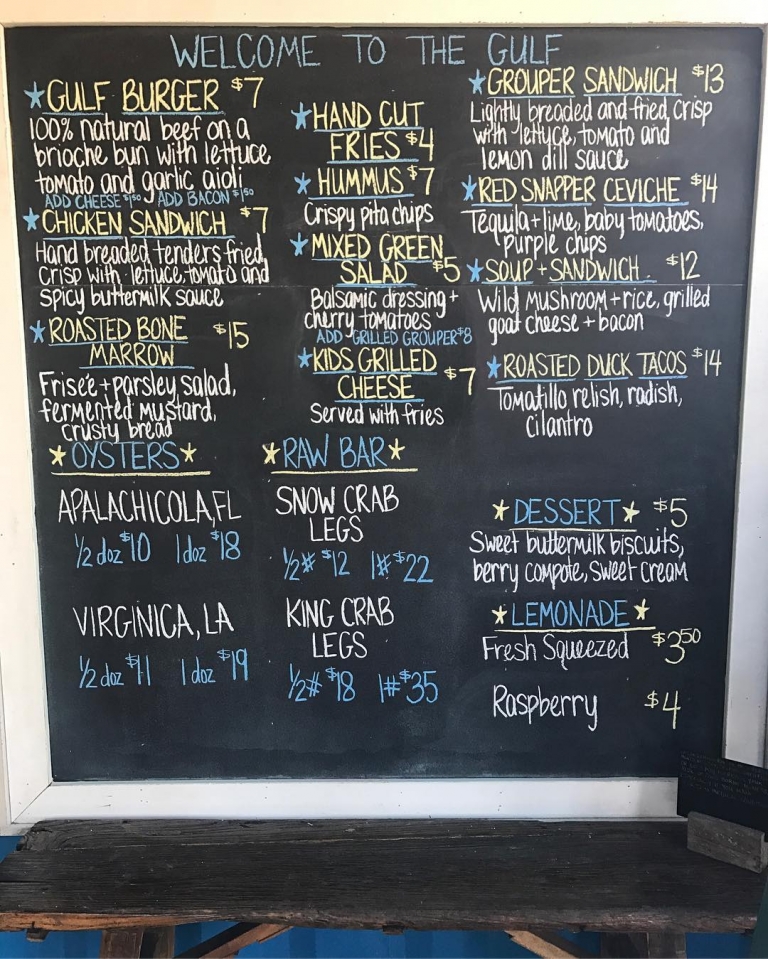 WELCOME TO THE GULF
★GULF BURGER $7
100% natural beef on a
brioche bun with lettuce,
tomato and garlic aioli
ADD CHEESE $1.50 ADD BACON $1.50
★CHICKEN SANDWICH $7
Hand breaded tenders fried,
crisp with lettuce, tomato and
spicy buttermilk sauce
★ROASTED BONE $15
MARROW
Friseé + parsley salad,
fermented mustard,
crusty bread
★HAND CUT
FRIES $4
★HUMMUS $7
Crispy pita chips
★MIXED GREEN
SALAD $5
Balsamic dressing +
cherry tomatoes
ADD GRILLED GROUPER $8
★KIDS GRILLED
CHEESE $7
Served with fries
★GROUPER SANDWICH $13
Lightly breaded and fried crisp
with lettuce, tomato and
lemon dill sauce
★RED SNAPPER CEVICHE $14
Tequila + lime, baby tomatoes,
purple chips
★SOUP + SANDWICH $12
Wild mushroom + rice, grilled
goat cheese + bacon
★ROASTED DUCK TACOS $14
Tomatillo relish, radish,
cilantro
★OYSTERS★
APALACHICOLA, FL
1/2 doz $10 1 doz $18
VIRGINICA, LA
1/2 doz $11 1 doz $19
★RAW BAR★
SNOW CRAB
LEGS
1/2# $12 1# $22
KING CRAB
LEGS
1/2# $18 1# $35
★DESSERT★ $5
Sweet buttermilk biscuits,
berry compote, sweet cream
★LEMONADE★
Fresh Squeezed $3.50
Raspberry $4